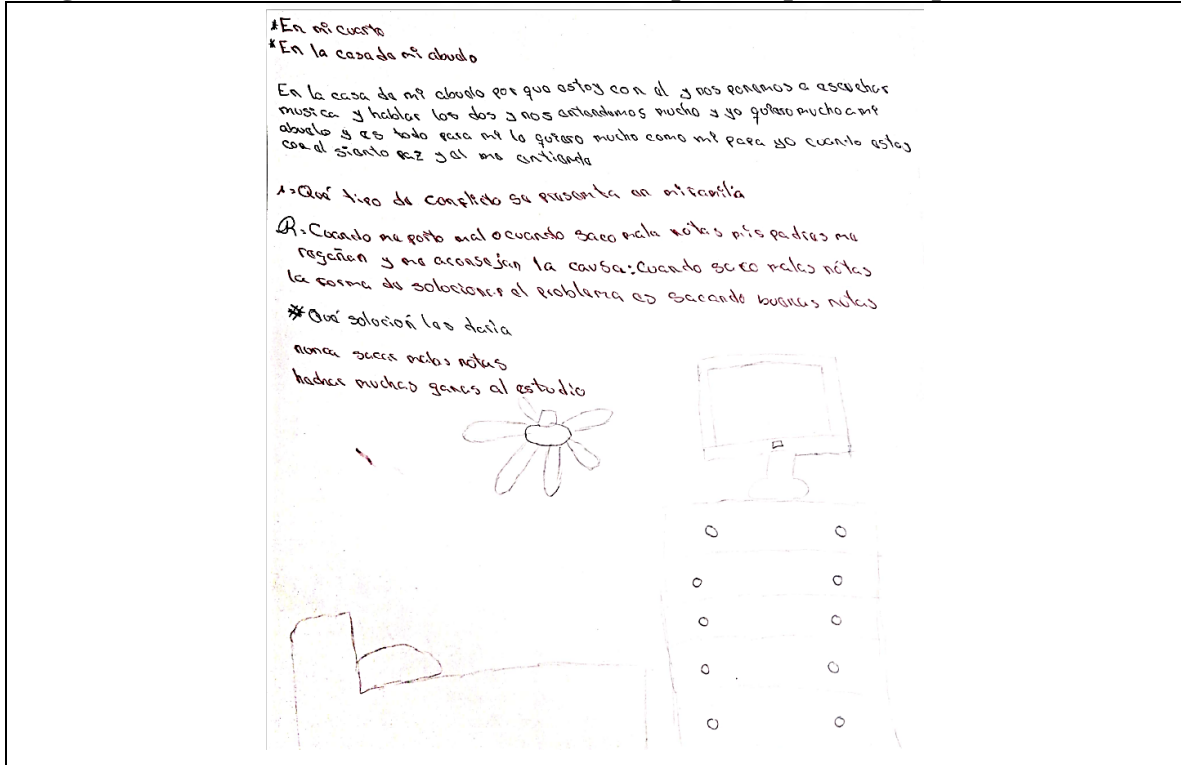 *En mi cuarto
*En la casa de mi abuelo
En la casa de mi abuelo por que estoy con el y nos ponemos a escuchar
musica y hablar los dos y nos entendemos mucho y yo quiero mucho a mi
abuelo y es todo para mi lo quiero mucho como mi papa yo cuando estoy
con el siento paz y el me entiende
1= Qué tipo de conflicto se presenta en mi familia
R= Cuando me porto mal o cuando saco mala notas mis padres me
regañan y me aconsejan la causa: Cuando saco malas notas
la forma de solucionar el problema es sacando buenas notas
* Qué solocion les daria
nunca sacar malas notas
hechar muchas ganas al estudio